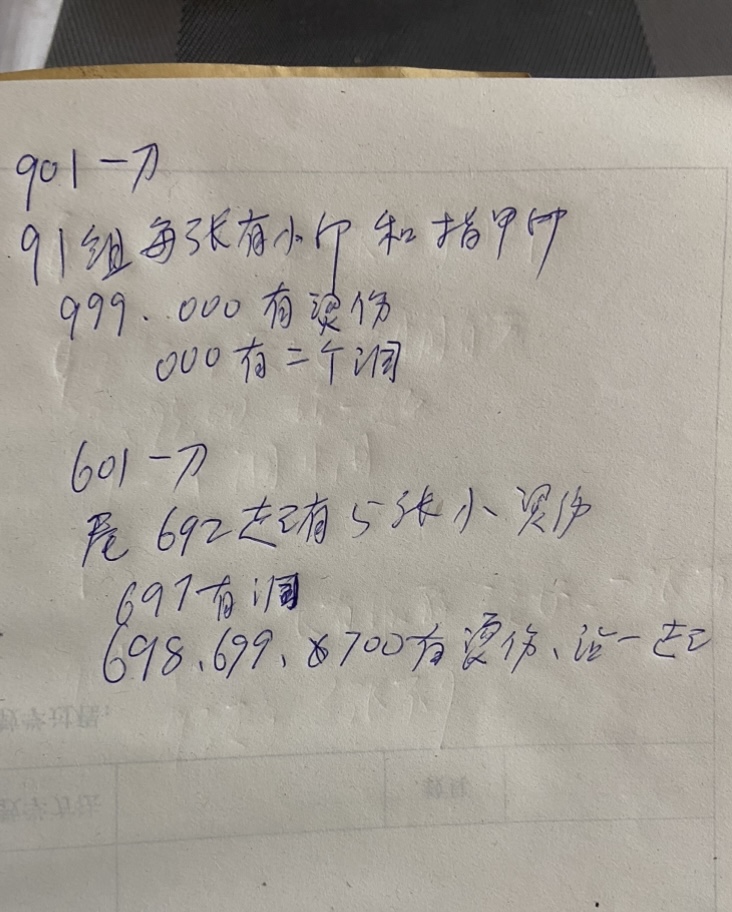 901一刀
91组每张有小印和指甲印
999.000有烫伤
000有二个洞
601一刀
尾692起有5张小烫伤
697有洞
698、699、700有烫伤、沾一起